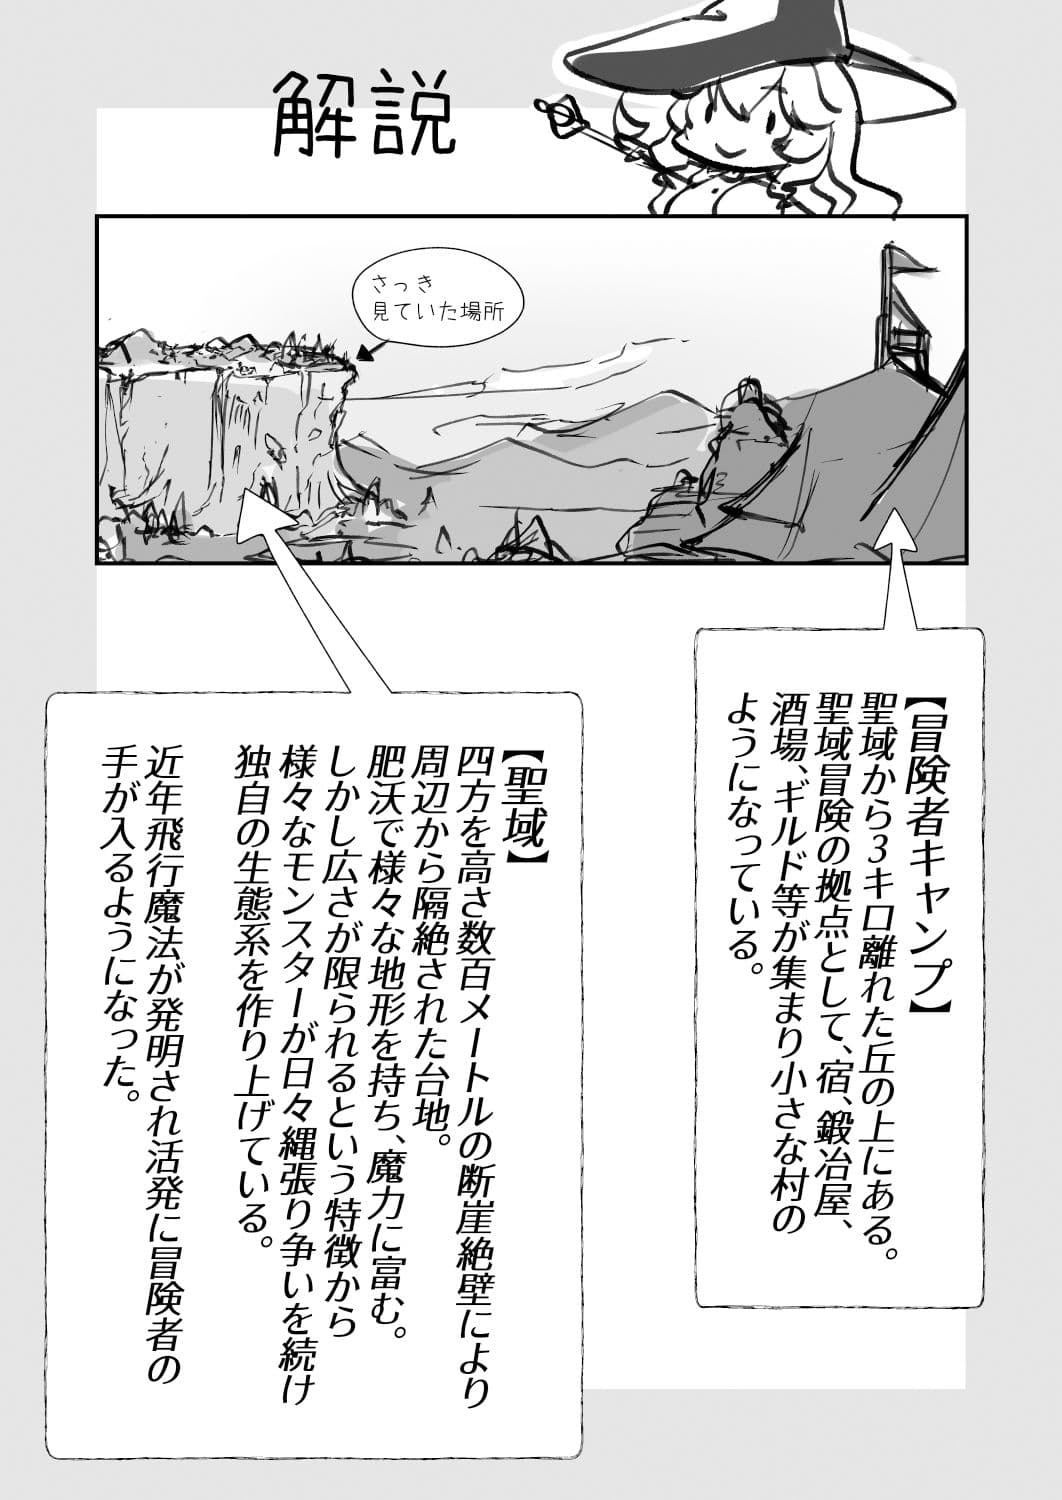 解説
さっき
見ていた場所
【冒険者キャンプ】
聖域から3キロ離れた丘の上にある。
聖域冒険の拠点として、宿、鍛冶屋、
酒場、ギルド等が集まり小さな村の
ようになっている。
【聖域】
四方を高さ数百メートルの断崖絶壁により
周辺から隔絶された台地。
肥沃で様々な地形を持ち、魔力に富む。
しかし広さが限られるという特徴から
様々なモンスターが日々縄張り争いを続け
独自の生態系を作り上げている。
近年飛行魔法が発明され活発に冒険者の
手が入るようになった。